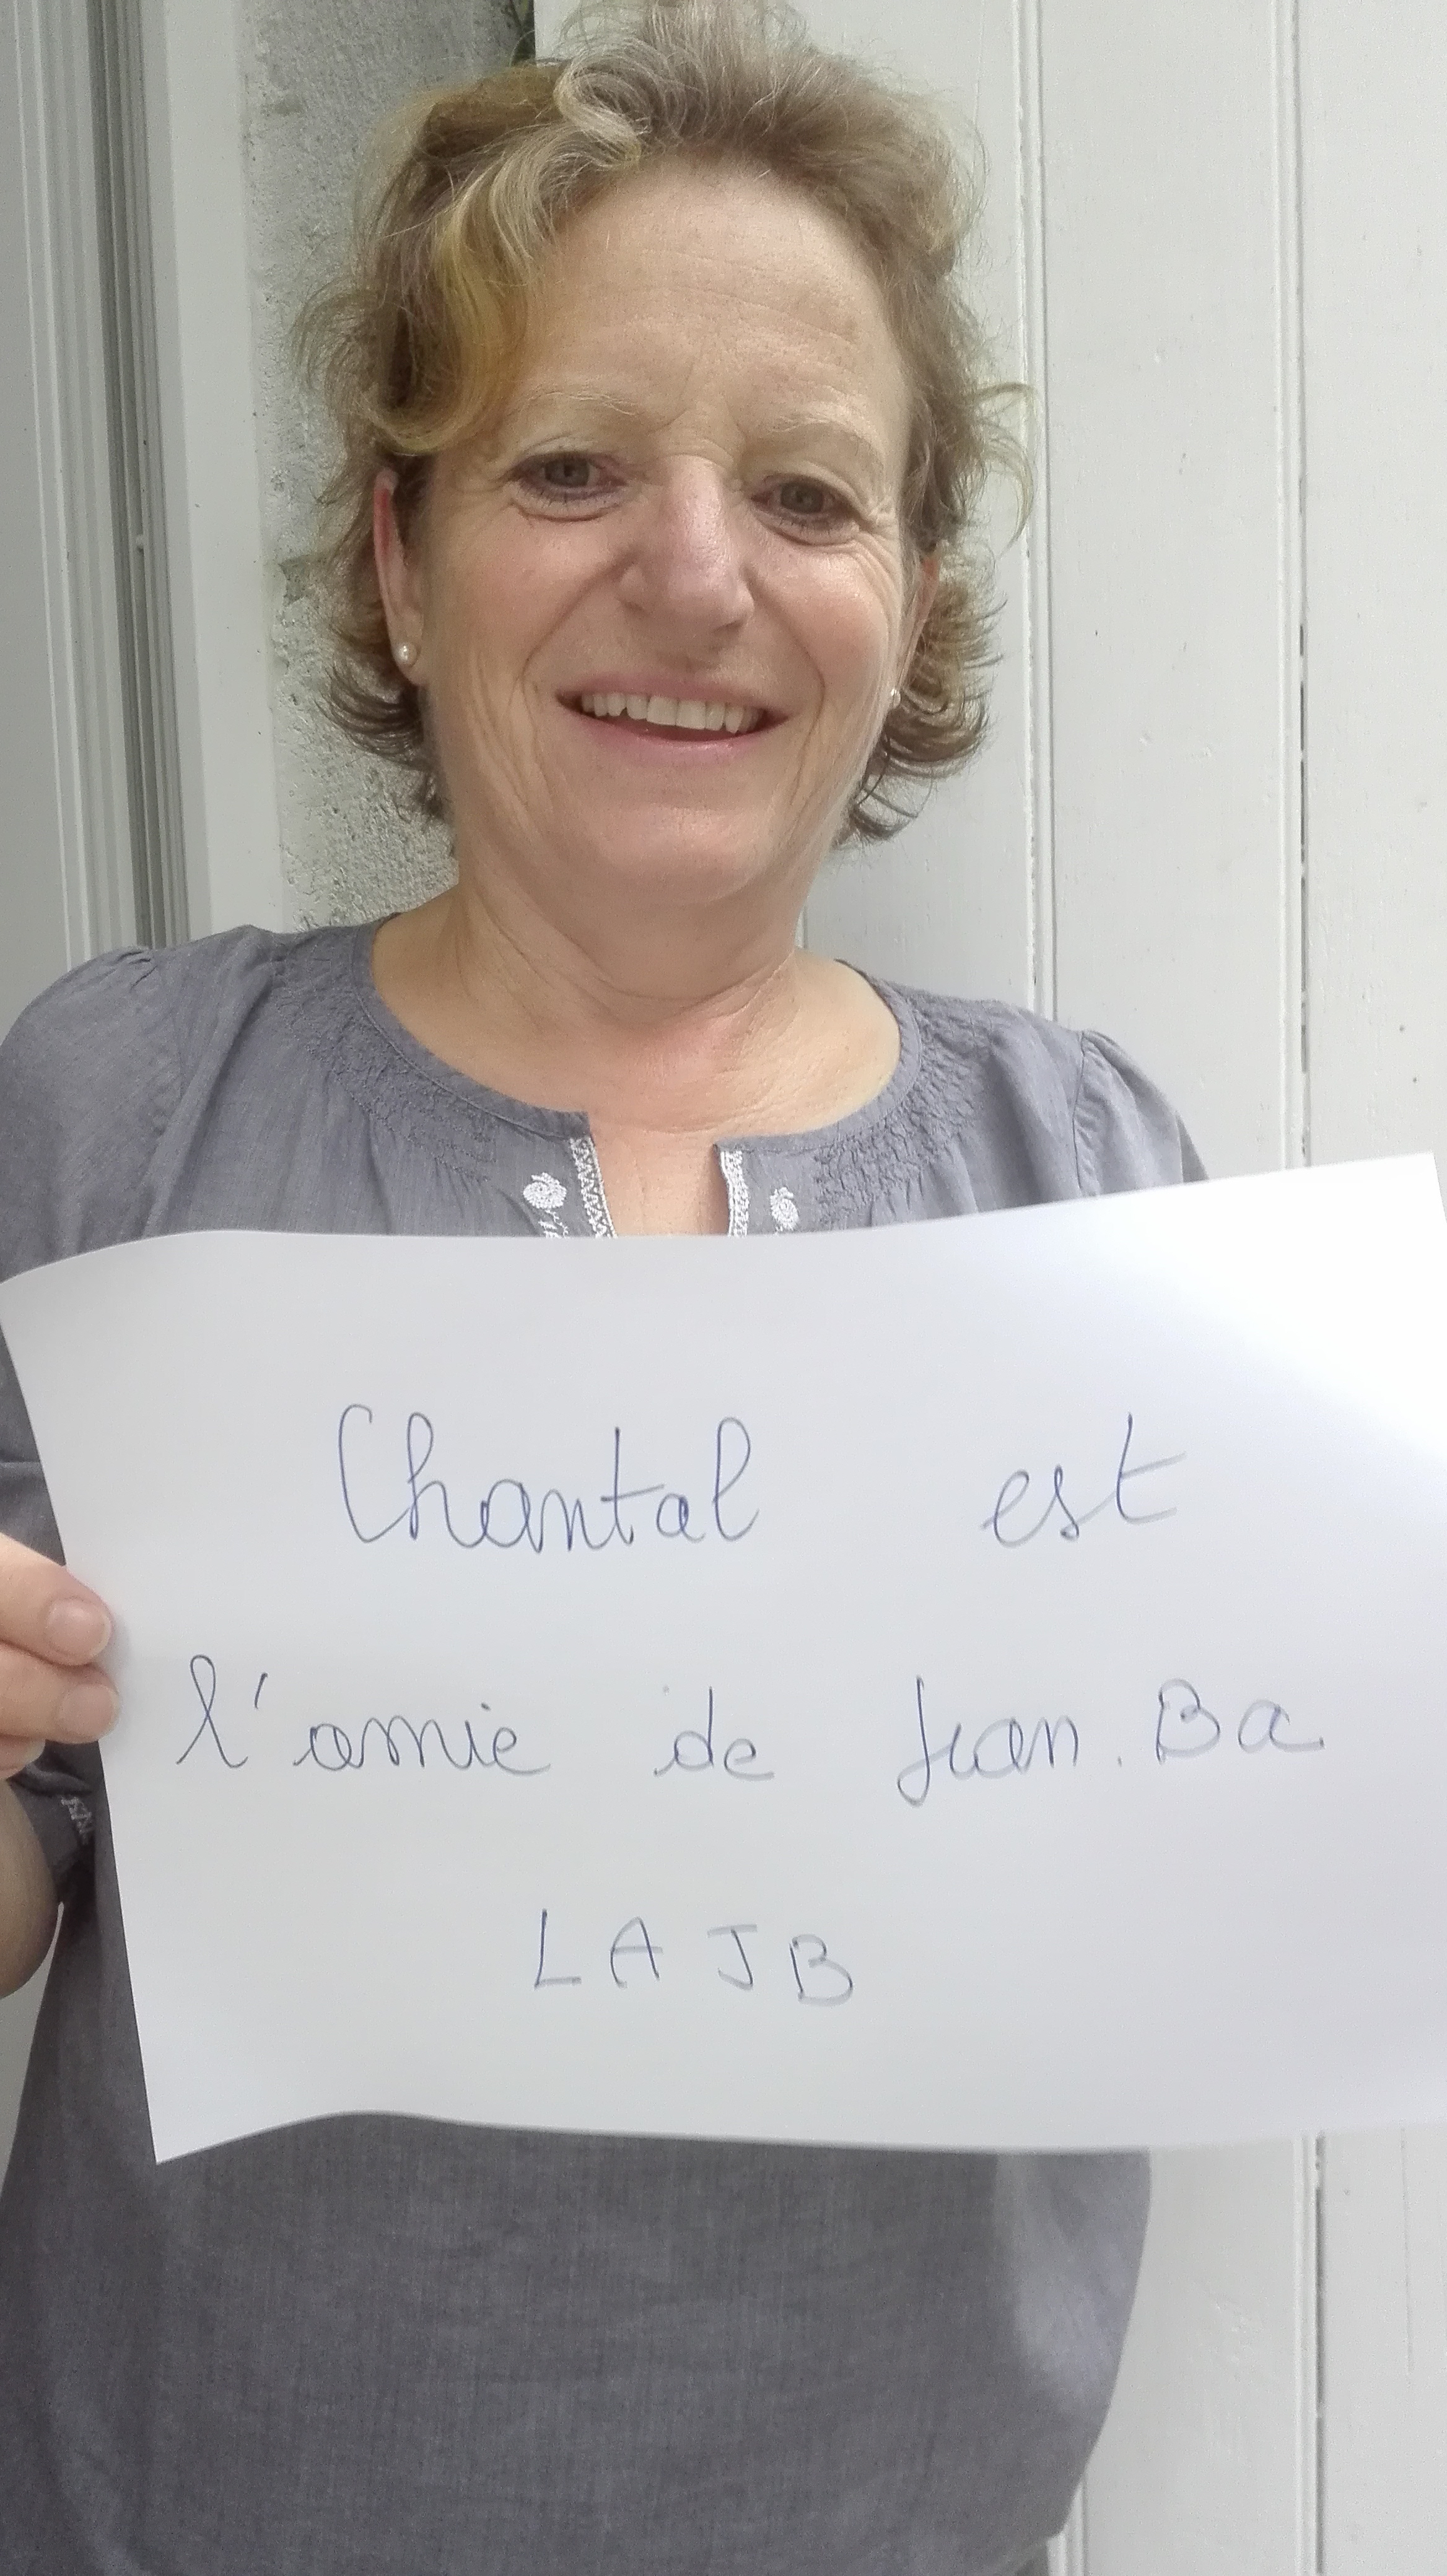 Chantal est
l'amie de Jean. Ba
LAJB